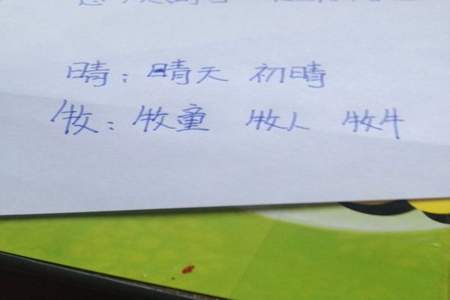 晴：晴天 初晴
牧：牧童 牧人 牧牛